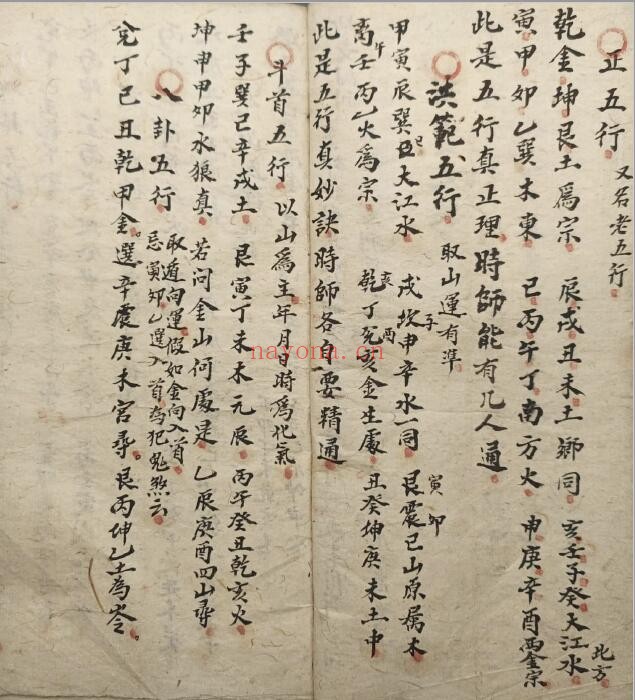 正五行 又名老五行
乾金坤艮土為宗 辰戌丑未土鄉同 亥壬子癸大江水 北方
寅甲卯乙巽木東 巳丙午丁南方火 申庚辛酉西金宗
此是五行真正理 時師能有几人通
洪範五行 取山運有準
甲寅辰巽巳大江水 戌坎子申辛水一同 艮震巳山原属木 寅卯
离午壬丙乙火為宗 乾亥丁兑酉亥金生處 丑癸坤庚未土中
此是五行真妙訣 時師各自要精通
斗首五行 以山為主年月日時為化氣
壬子巽巳辛戌土 艮寅丁未木元辰 丙午癸丑乾亥火
坤申甲卯水狼真 若问金山何處是 乙辰庚酉四山尋
八卦五行 取遁向運假如金向入首
忌寅卯乙選入首為犯鬼煞云
兑丁巳丑乾甲金 選辛震庚未宮尋 艮丙坤乙土為岑
nayona.cn